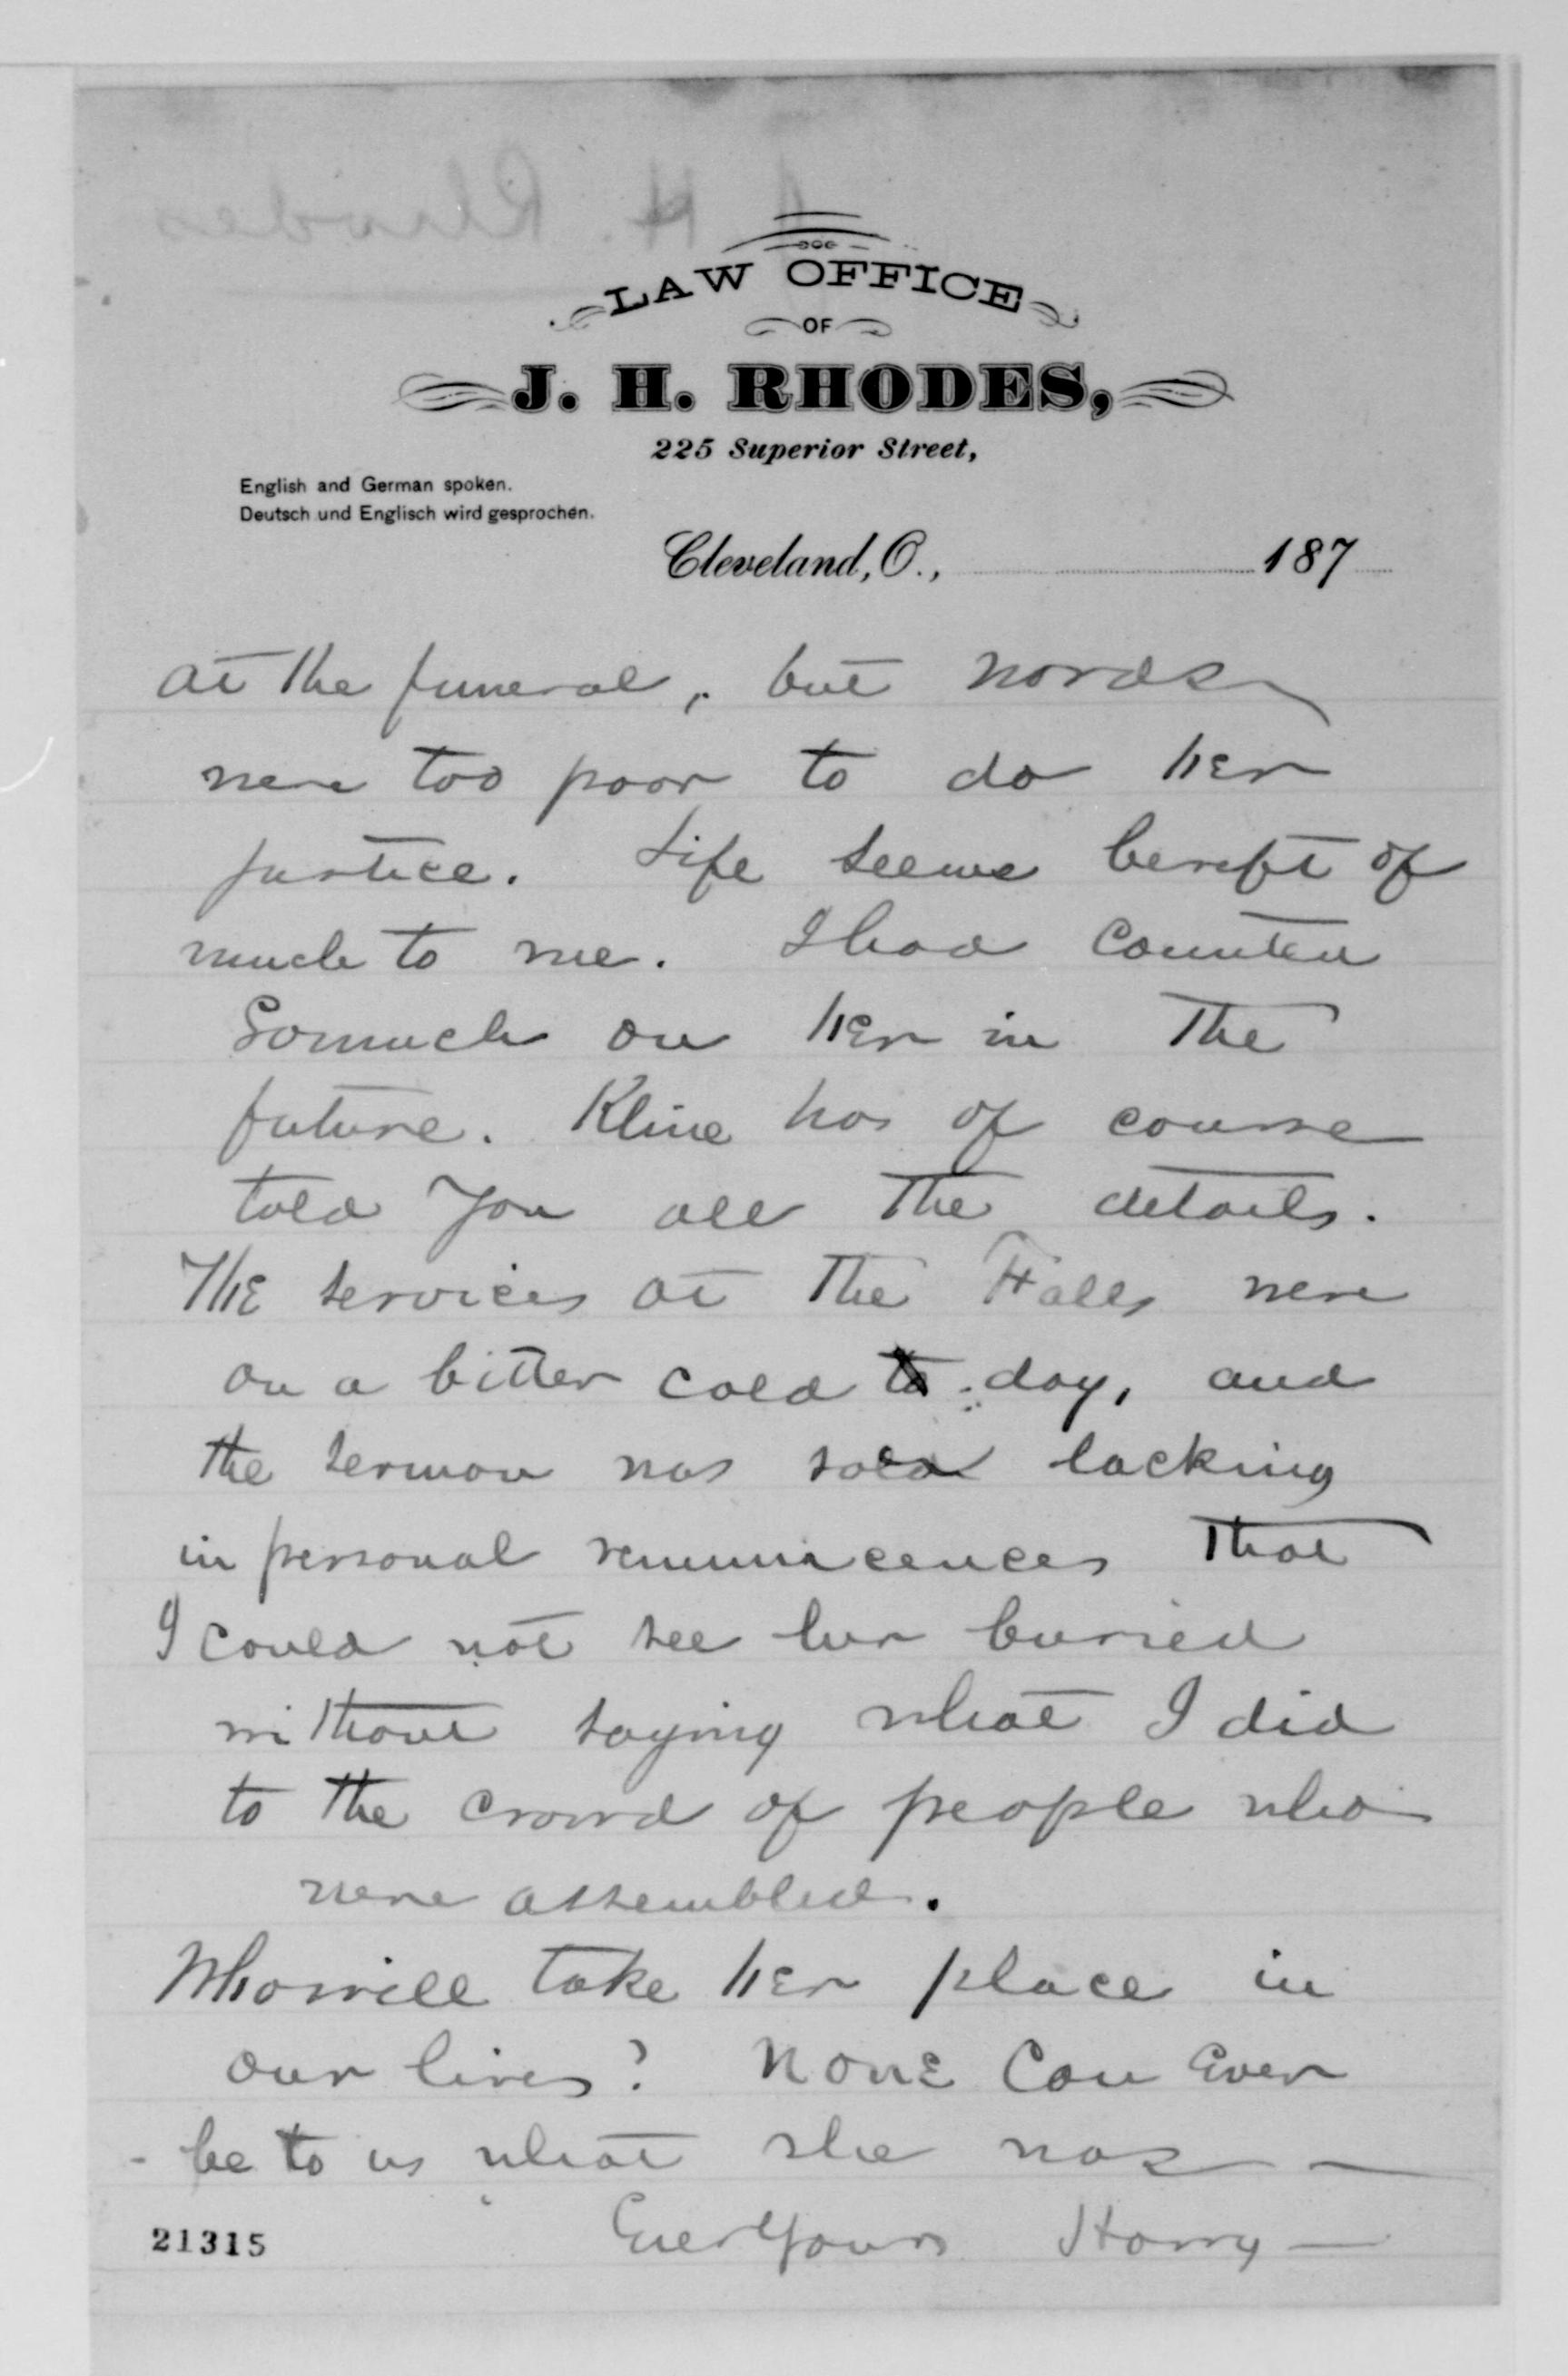 LAW OFFICE
OF
J. H. RHODES,
225 Superior Street,
English and German spoken.
Deutsch und Englisch wird gesprochen.
Cleveland, O., 187
at the funeral, but words
were too poor to do her
justice. Life seems bereft of
much to me. I had counted
so much on her in the
future. Kline has of course
told you all the details.
The services at the Falls were
on a bitter cold day, and
the sermon was so lacking
in personal reminicences that
I could not see her buried
without saying what I did
to the crowd of people who
were assembled.
Who will take her place in
our lives? None can ever
be to us what she was —
Ever Yours Harry —
21315